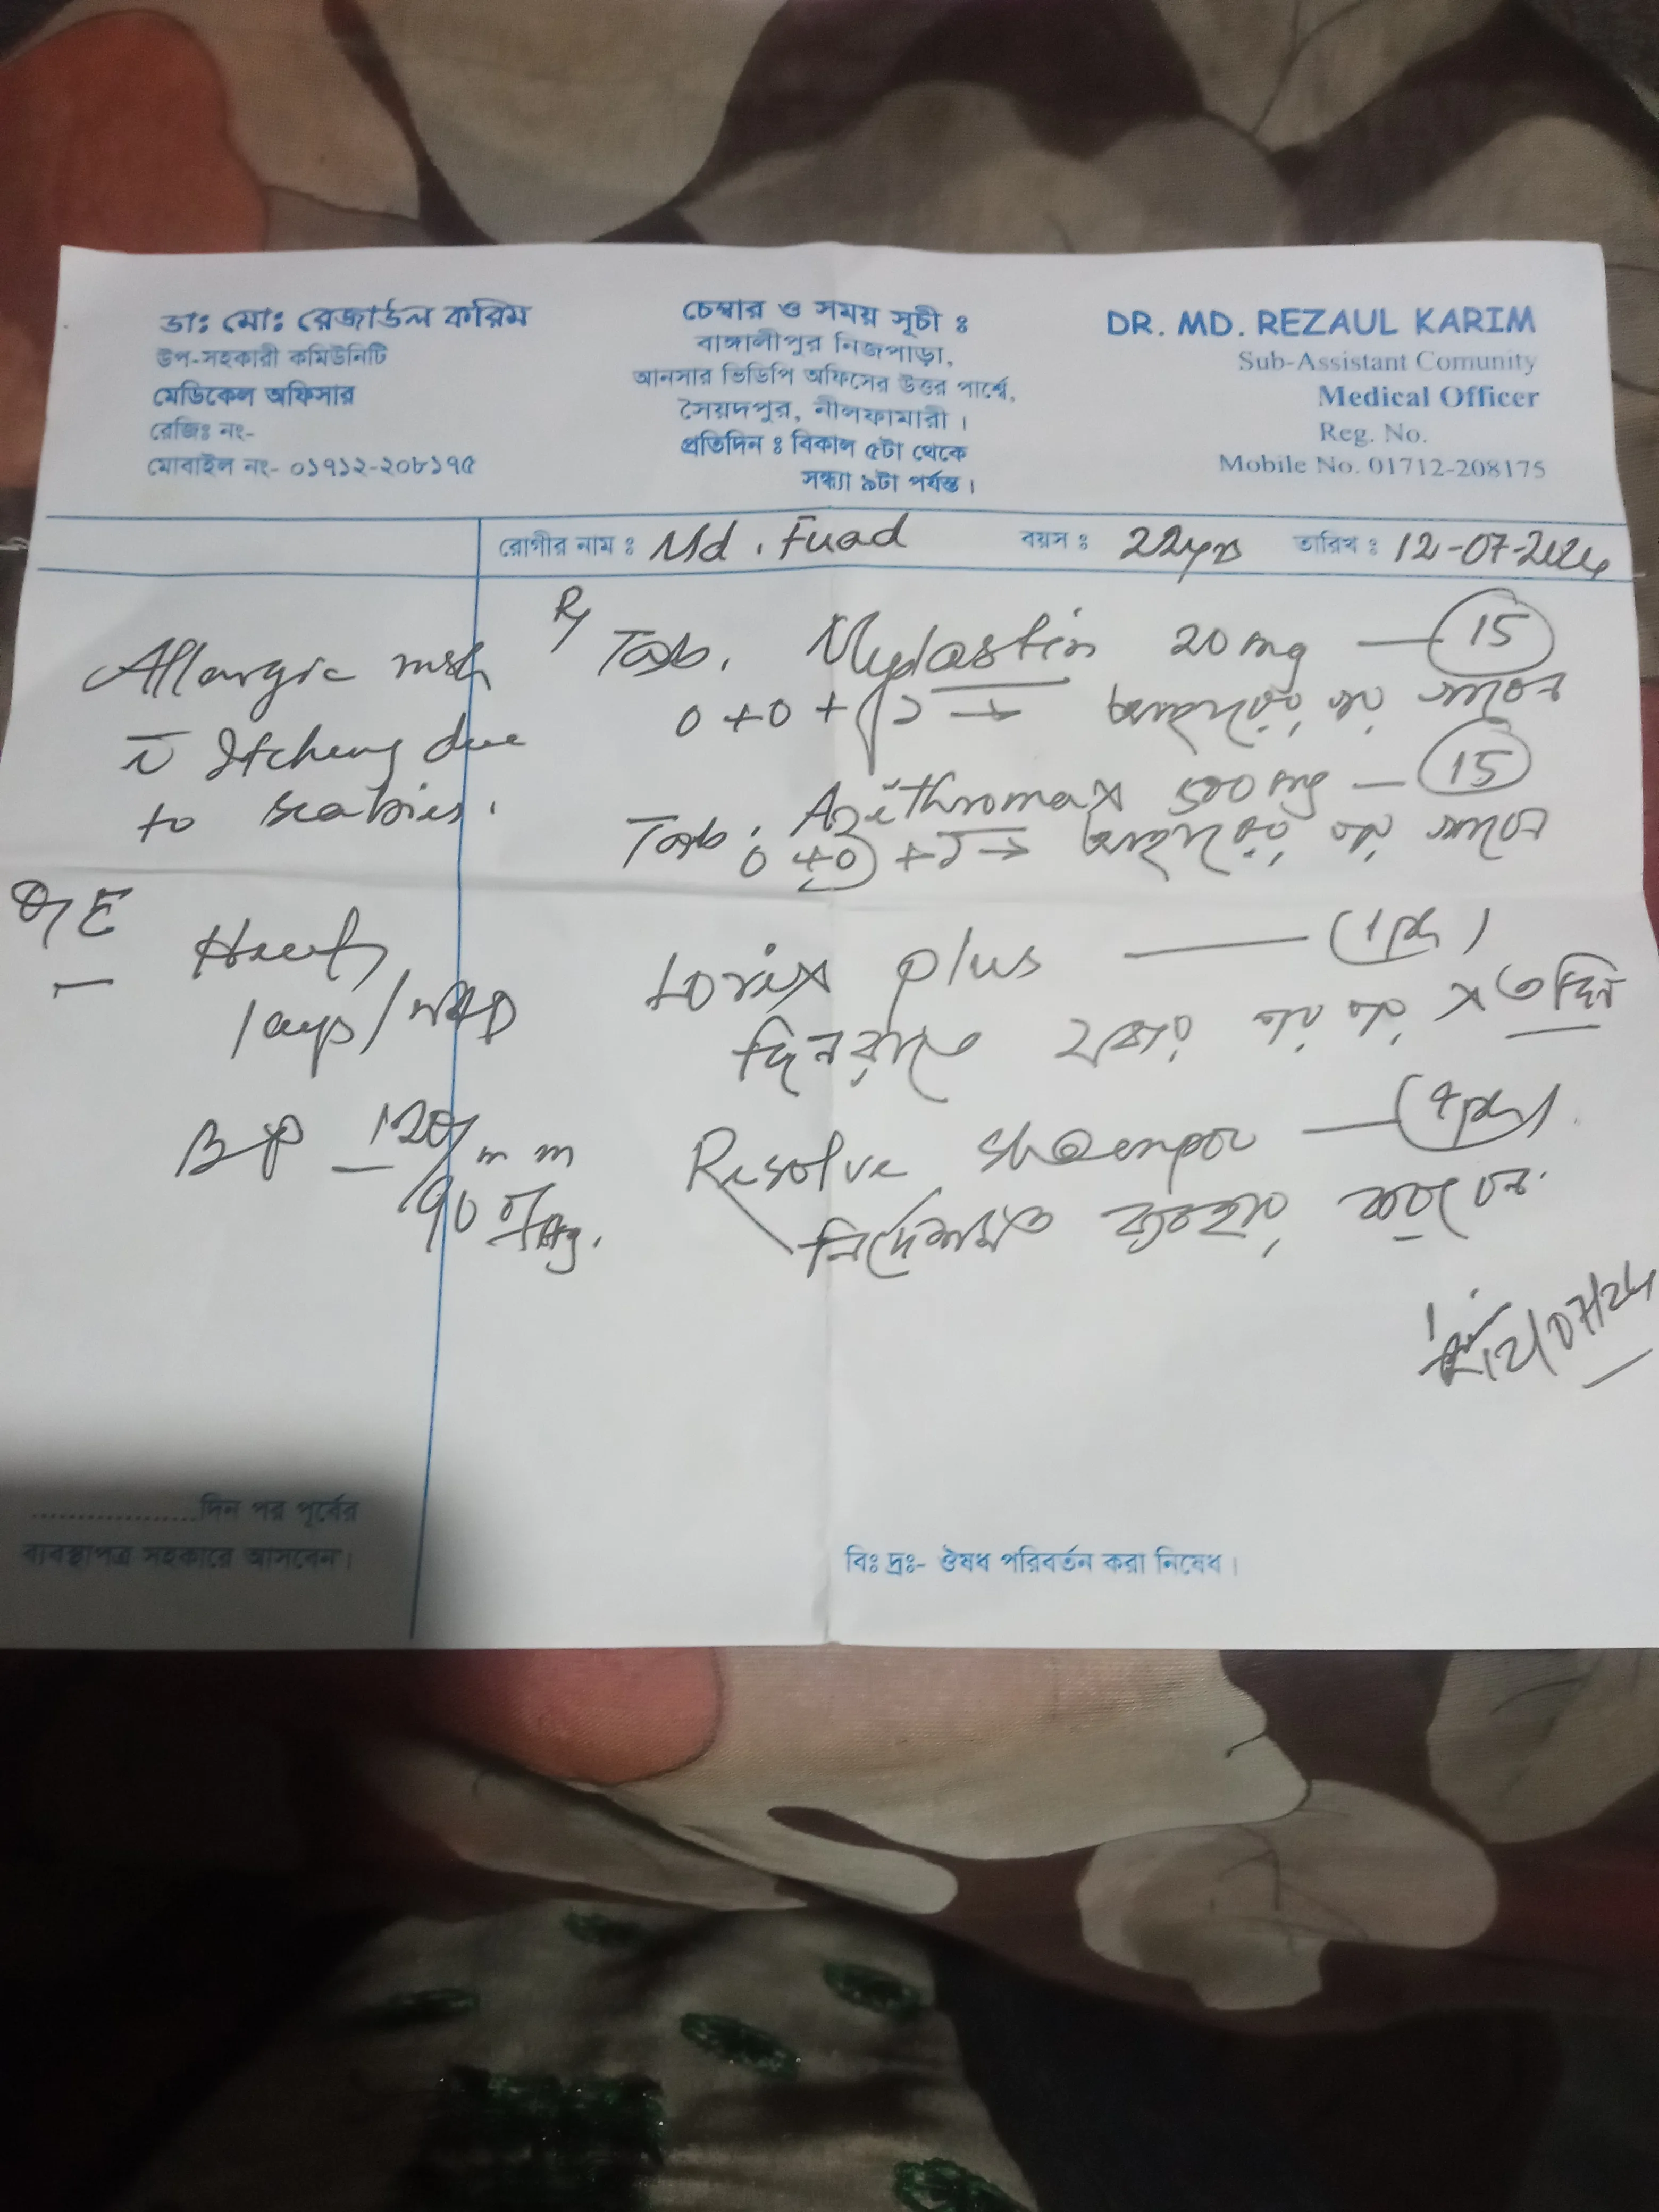 ডাঃ মোঃ রেজাউল করিম
উপ-সহকারী কমিউনিটি
মেডিকেল অফিসার
রেজিঃ নং-
মোবাইল নং- ০১৭১২-২০৮১৭৫
চেম্বার ও সময় সূচী ঃ
বাঙ্গালীপুর নিজপাড়া,
আনসার ভিডিপি অফিসের উত্তর পার্শ্বে,
সৈয়দপুর, নীলফামারী।
প্রতিদিন ঃ বিকাল ৫টা থেকে
সন্ধ্যা ৯টা পর্যন্ত।
DR. MD. REZAUL KARIM
Sub-Assistant Comunity
Medical Officer
Reg. No.
Mobile No. 01712-208175
রোগীর নাম ঃ Md. Fuad বয়স ঃ 22yrs তারিখ ঃ 12-07-2024
Allargic
Itching due
to scabies.
O/E
BP - 120/90 mm of Hg.
Rx
Tab. 20mg — 15
0+0+১ →
Tab. Azithromax 500mg — 15
0+0+১ →
Lorix plus —
দিনরাতে × ৩ দিন
Resolve shaempoo —
নির্দেশমত ব্যবহার করবেন.
12/07/24
..................দিন পর পূর্বের
ব্যবস্থাপত্র সহকারে আসবেন।
বিঃ দ্রঃ- ঔষধ পরিবর্তন করা নিষেধ।